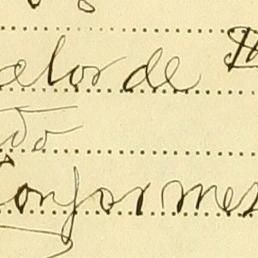 alor de
do
Conformes